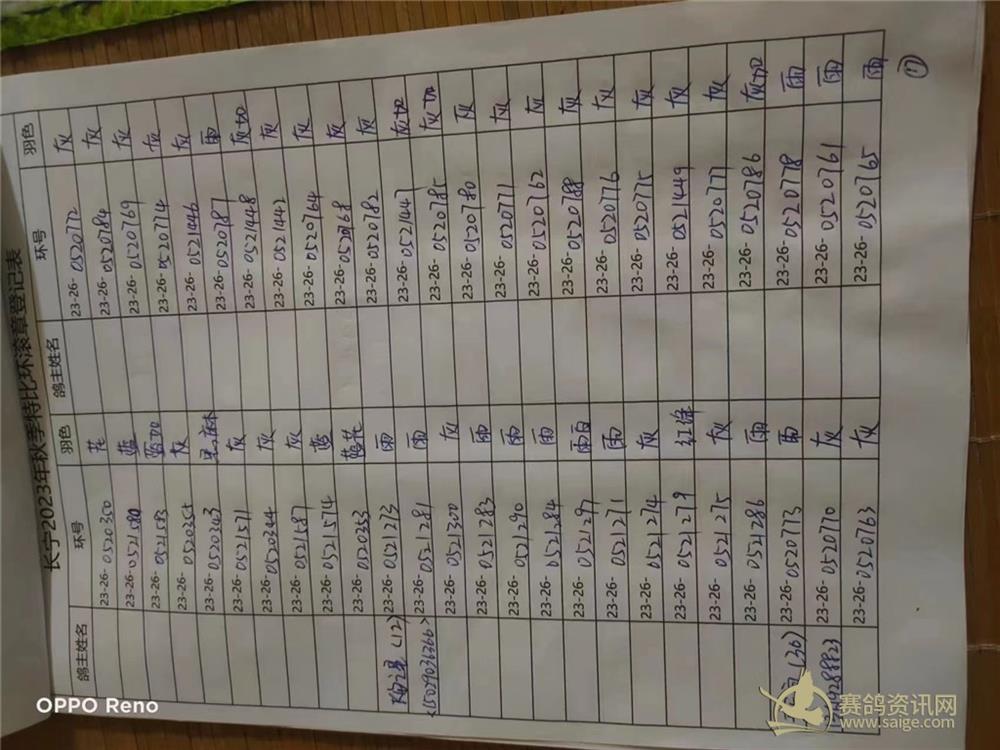 长宁2023年秋季特比环滚章登记表
鸽主姓名 环号 羽色 鸽主姓名 环号 羽色
23-26-0520350 花 23-26-0520772 灰
23-26-0521580 蓝 23-26-0520784 灰
23-26-0521593 蓝加 23-26-0520769 灰
23-26-0520355 灰 23-26-0520774 灰
23-26-0520343 黑麻 23-26-0521446 灰
23-26-0521571 灰 23-26-0520787 雨
23-26-0520344 灰 23-26-0521448 灰加
23-26-0521587 灰 23-26-0521442 灰
23-26-0521574 蓝 23-26-0520764 灰
23-26-0520353 蓝花 23-26-0520768 灰
(12) 23-26-0521273 雨 23-26-0520782 灰
<15029036366> 23-26-0521281 雨 23-26-0521447 灰加
23-26-0521300 灰 23-26-0520785 灰加
23-26-0521283 雨 23-26-0520780 灰
23-26-0521290 雨 23-26-0520771 灰
23-26-0521284 雨 23-26-0520762 灰
23-26-0521297 雨白 23-26-0520788 灰
23-26-0521271 雨 23-26-0520776 灰
23-26-0521274 灰 23-26-0520775 灰
23-26-0521279 红绛 23-26-0521449 灰
23-26-0521275 灰 23-26-0520777 灰
23-26-0521286 雨 23-26-0520786 灰加
(36) 23-26-0520773 雨 23-26-0520778 雨
23-26-0520770 灰 23-26-0520761 雨
23-26-0520763 灰 23-26-0520765 雨
OPPO Reno
赛鸽资讯网
www.saige.com